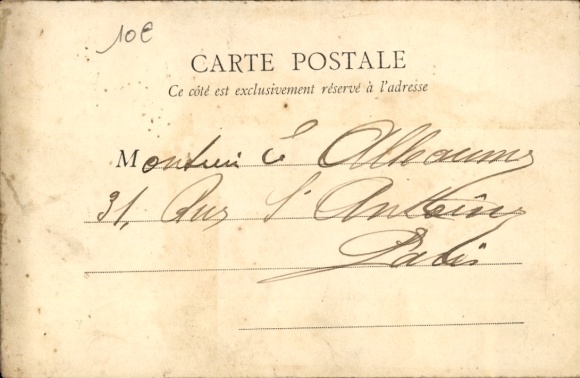 10€
CARTE POSTALE
Ce côté est exclusivement réservé à l'adresse
Monsieur E Alleaume
31, Rue St Antoine
Paris